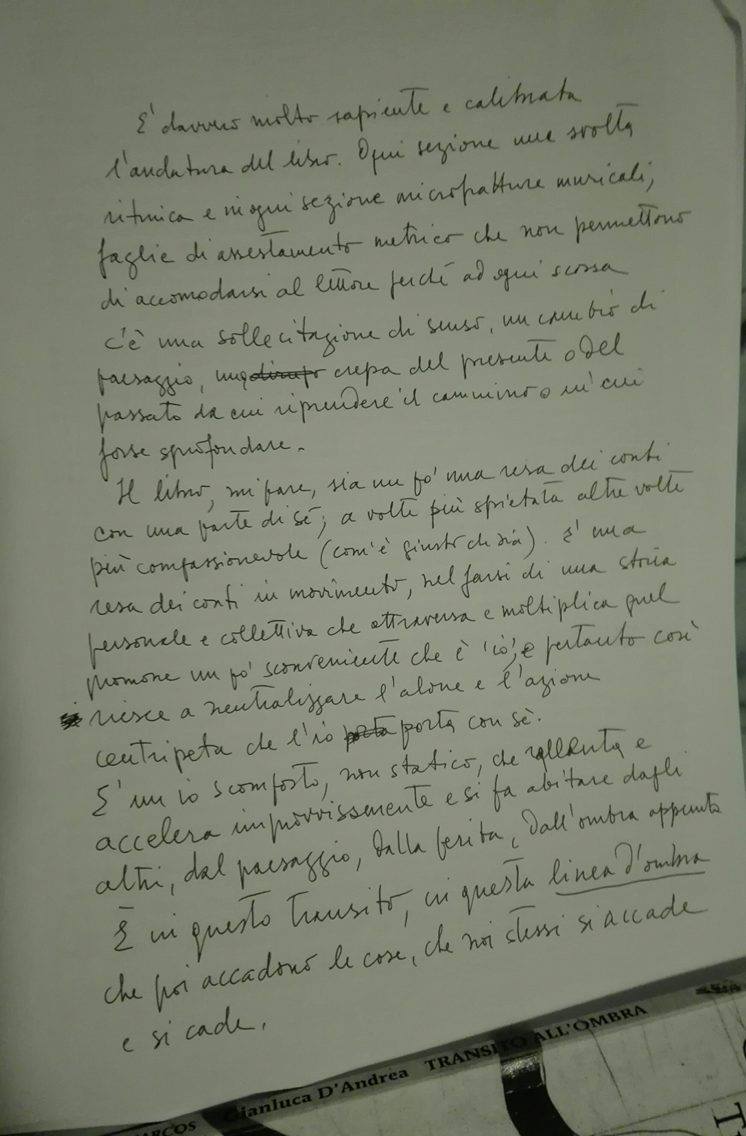 E' davvero molto sapiente e calibrata
l'andatura del libro. Ogni sezione una svolta
ritmica e in ogni sezione microfratture musicali,
faglie di assestamento metrico che non permettono
di accomodarsi al lettore perché ad ogni scossa
c'è una sollecitazione di senso, un cambio di
paesaggio, una crepa del presente o del
passato da cui riprendere il cammino o in cui
forse sprofondare.
Il libro, mi pare, sia un po' una resa dei conti
con una parte di sé, a volte più spietata altre volte
più compassionevole (com'è giusto che sia). E' una
resa dei conti in movimento, nel farsi di una storia
personale e collettiva che attraversa e moltiplica quel
pronome un po' sconveniente che è 'io', e pertanto così
riesce a neutralizzare l'alone e l'azione
centripeta che l'io porta porta con sè.
E' un io scomposto, non statico, che rallenta e
accelera improvvisamente e si fa abitare dagli
altri, dal paesaggio, dalla ferita, dall'ombra appunto
È in questo transito, in questa linea d'ombra
che poi accadono le cose, che noi stessi si accade
e si cade.
ARCOS Gianluca D'Andrea TRANSITO ALL'OMBRA